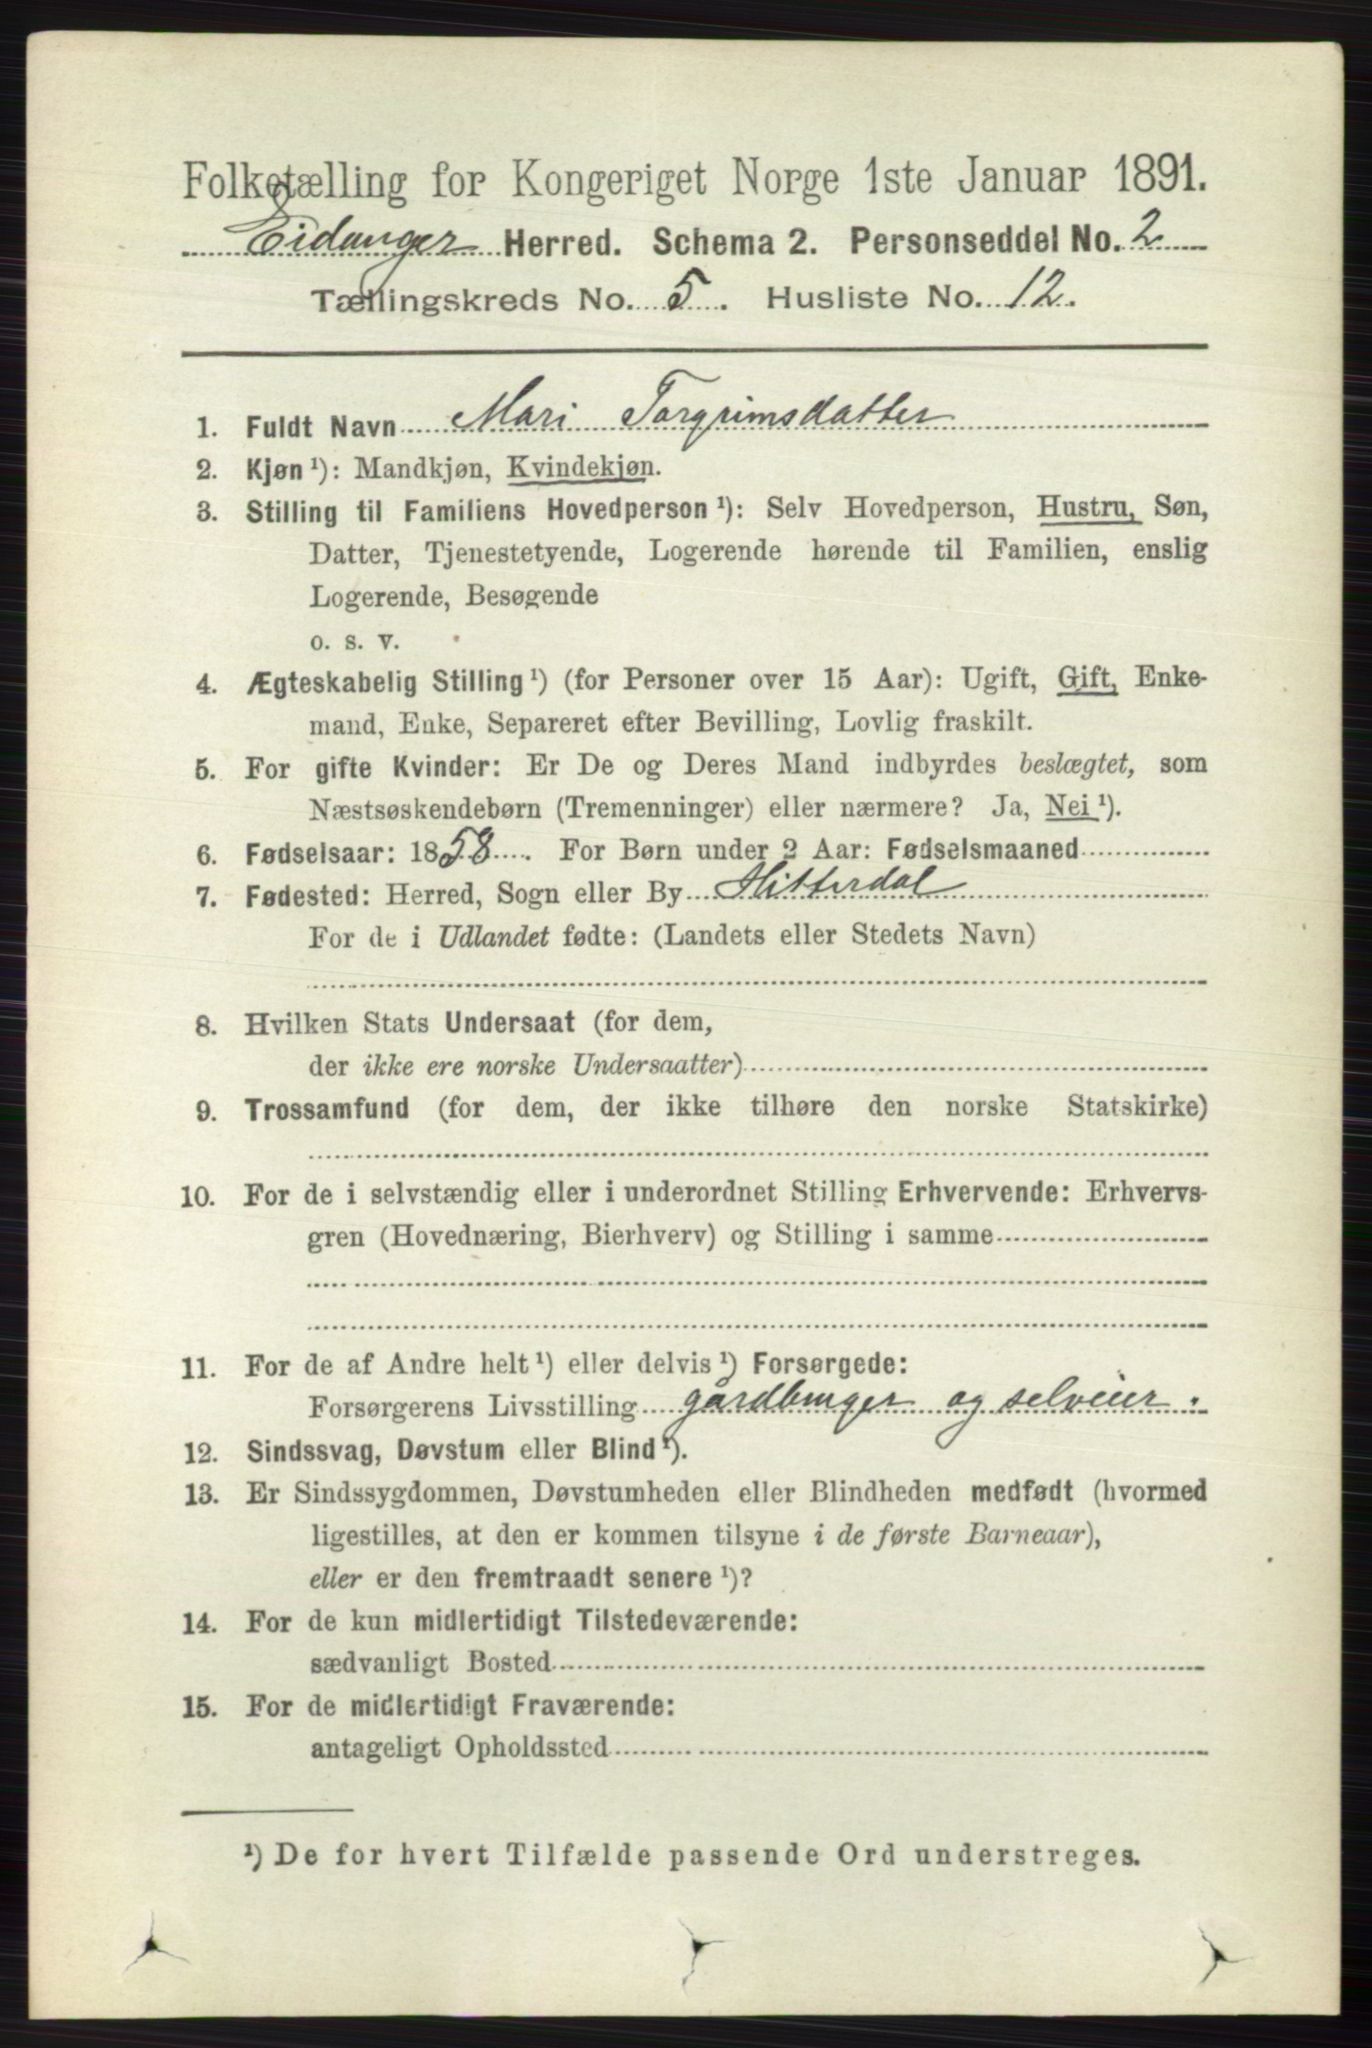 Folketælling for Kongeriget Norge 1ste Januar 1891.
Eidanger Herred. Schema 2. Personseddel No. 2
Tællingskreds No. 5. Husliste No. 12.
1. Fuldt Navn Mari Torgrimsdatter
2. Kjøn ¹): Mandkjøn, Kvindekjøn.
3. Stilling til Familiens Hovedperson ¹): Selv Hovedperson, Hustru, Søn,
Datter, Tjenestetyende, Logerende hørende til Familien, enslig
Logerende, Besøgende
o. s. v.
4. Ægteskabelig Stilling ¹) (for Personer over 15 Aar): Ugift, Gift, Enke-
mand, Enke, Separeret efter Bevilling, Lovlig fraskilt.
5. For gifte Kvinder: Er De og Deres Mand indbyrdes beslægtet, som
Næstsøskendebørn (Tremenninger) eller nærmere? Ja, Nei ¹).
6. Fødselsaar: 1858. For Børn under 2 Aar: Fødselsmaaned
7. Fødested: Herred, Sogn eller By Hitterdal
For de i Udlandet fødte: (Landets eller Stedets Navn)
8. Hvilken Stats Undersaat (for dem,
der ikke ere norske Undersaatter)
9. Trossamfund (for dem, der ikke tilhøre den norske Statskirke)
10. For de i selvstændig eller i underordnet Stilling Erhvervende: Erhvervs-
gren (Hovednæring, Bierhverv) og Stilling i samme
11. For de af Andre helt ¹) eller delvis ¹) Forsørgede:
Forsørgerens Livsstilling gårdbruger og selveier.
12. Sindssvag, Døvstum eller Blind ¹).
13. Er Sindssygdommen, Døvstumheden eller Blindheden medfødt (hvormed
ligestilles, at den er kommen tilsyne i de første Barneaar),
eller er den fremtraadt senere ¹)?
14. For de kun midlertidigt Tilstedeværende:
sædvanligt Bosted
15. For de midlertidigt Fraværende:
antageligt Opholdssted
¹) De for hvert Tilfælde passende Ord understreges.